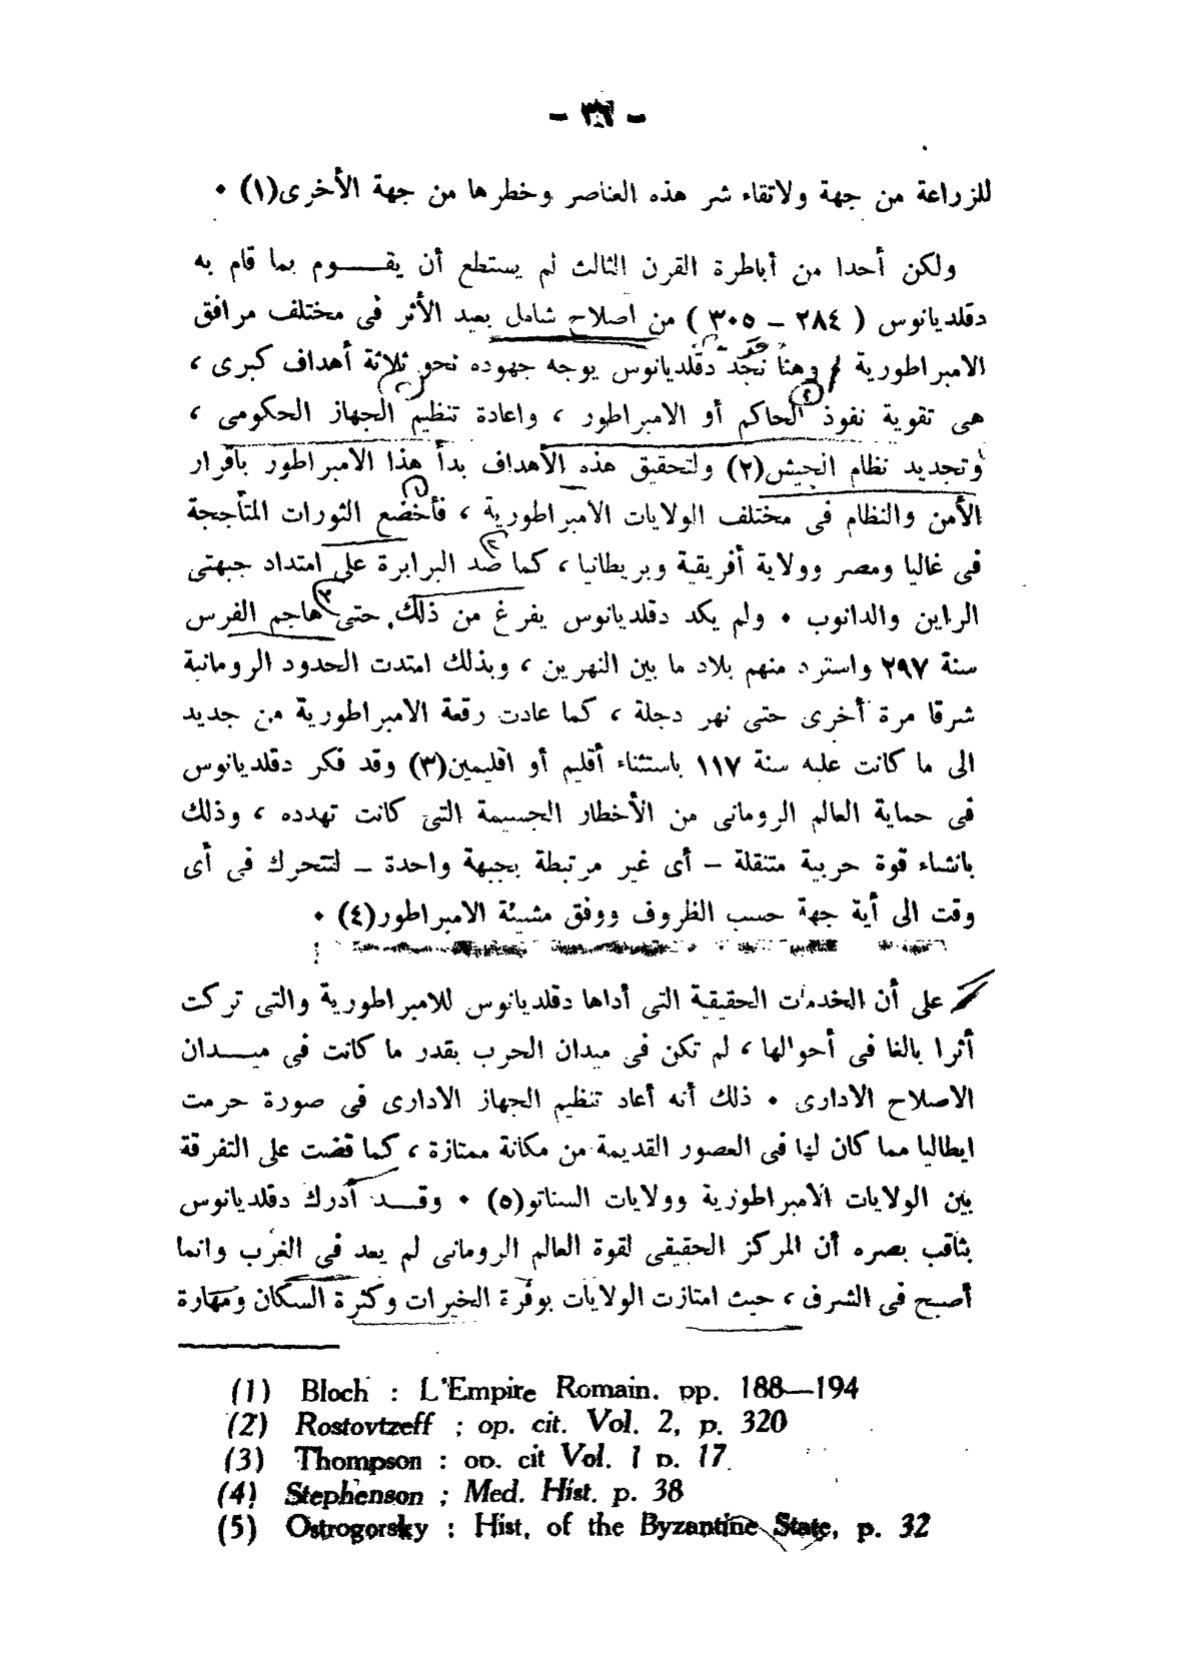 للزراعة من جهة ولاتقاء شر هذه العناصر وخطرها من جهة الأخرى(١) •
ولكن أحدا من أباطرة القرن الثالث لم يستطع أن يقـــوم بما قام به
دقلديانوس ( ٢٨٤ – ٣٠٥ ) من اصلاح شامل بعيد الأثر فى مختلف مرافق
الامبراطورية وهنا نجد دقلديانوس يوجه جهوده نحو ثلاثة أهداف كبرى ،
هى تقوية نفوذ الحاكم أو الامبراطور ، واعادة تنظيم الجهاز الحكومى ،
وتجديد نظام الجيش(٢) ولتحقيق هذه الأهداف بدأ هذا الامبراطور باقرار
الأمن والنظام فى مختلف الولايات الامبراطورية ، فأخضع الثورات المتأججة
فى غاليا ومصر وولاية أفريقية وبريطانيا ، كما صد البرابرة على امتداد جبهتى
الراين والدانوب • ولم يكد دقلديانوس يفرغ من ذلك حتى هاجم الفرس
سنة ٢٩٧ واسترد منهم بلاد ما بين النهرين ، وبذلك امتدت الحدود الرومانية
شرقا مرة أخرى حتى نهر دجلة ، كما عادت رقعة الامبراطورية من جديد
الى ما كانت عليه سنة ١١٧ باستثناء أقليم أو اقليمين(٣) وقد فكر دقلديانوس
فى حماية العالم الرومانى من الأخطار الجسيمة التى كانت تهدده ، وذلك
بانشاء قوة حربية متنقلة – أى غير مرتبطة بجبهة واحدة – لتتحرك فى أى
وقت الى أية جهة حسب الظروف ووفق مشيئة الامبراطور(٤) •
على أن الخدمات الحقيقية التى أداها دقلديانوس للامبراطورية والتى تركت
أثرا بالغا فى أحوالها ، لم تكن فى ميدان الحرب بقدر ما كانت فى ميـــدان
الاصلاح الادارى • ذلك أنه أعاد تنظيم الجهاز الادارى فى صورة حرمت
ايطاليا مما كان لها فى العصور القديمة من مكانة ممتازة ، كما قضت على التفرقة
بين الولايات الامبراطورية وولايات السناتو(٥) • وقـــد أدرك دقلديانوس
بثاقب بصره أن المركز الحقيقى لقوة العالم الرومانى لم يعد فى الغرب وانما
أصبح فى الشرق ، حيث امتازت الولايات بوفرة الخيرات وكثرة السكان ومهارة
(1) Bloch : L'Empire Romain. pp. 188—194
(2) Rostovtzeff ; op. cit. Vol. 2, p. 320
(3) Thompson : op. cit Vol. 1 p. 17.
(4) Stephenson ; Med. Hist. p. 38
(5) Ostrogorsky : Hist. of the Byzantine State, p. 32